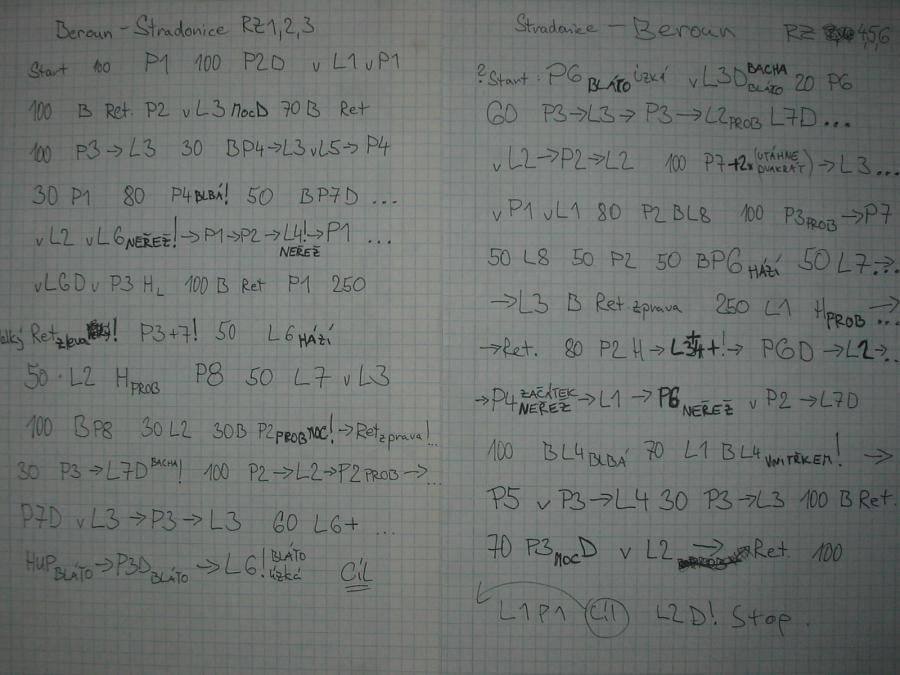 Beroun - Stradonice RZ 1,2,3
Start 100 P1 100 P2D v L1 v P1
100 B Ret. P2 v L3 MOCD 70 B Ret
100 P3 → L3 30 BP4 → L3 v L5 → P4
30 P1 80 P4 BLBÁ! 50 BP7D ...
v L2 v L6 NEŘEŽ! → P1 → P2 → L4! → P1 ...
NEŘEŽ
v L6D v P3 HL 100 B Ret P1 250
Ret zleva ! P3+7! 50 L6 HÁZÍ
50 L2 H PROB P8 50 L7 v L3
100 BP8 30 L2 30B P2 PROB MOC! → Ret zprava! ..
30 P3 → L7D BACHA! 100 P2 → L2 → P2 PROB → ...
P7D v L3 → P3 → L3 60 L6+ ...
HUP BLÁTO → P3D BLÁTO → L6! BLÁTO úzká CÍL
Stradonice - Beroun RZ 4,5,6
? Start : P6 BLÁTO úzká v L3D BACHA BLÁTO 20 P6
60 P3 → L3 → P3 → L2 PROB L7D ...
v L2 → P2 → L2 100 P7 +2x (UTÁHNE DVAKRÁT) → L3 ...
v P1 v L1 80 P2 BL8 100 P3 PROB → P7
50 L8 50 P2 50 BP6 HÁZÍ 50 L7 → ..
→ L3 B Ret zprava 250 L1 H PROB → ...
→ Ret. 80 P2 H → +! → P6D → L2 → ..
→ P4 ZAČÁTEK NEŘEŽ → L1 → P6 NEŘEŽ v P2 → L7D
100 BL4 BLBÁ 70 L1 BL4 VNITŘKEM! →
P5 v P3 → L4 30 P3 → L3 100 B Ret.
70 P3 MOCD v L2 → Ret. 100
L1 P1 Cíl L2D! Stop.